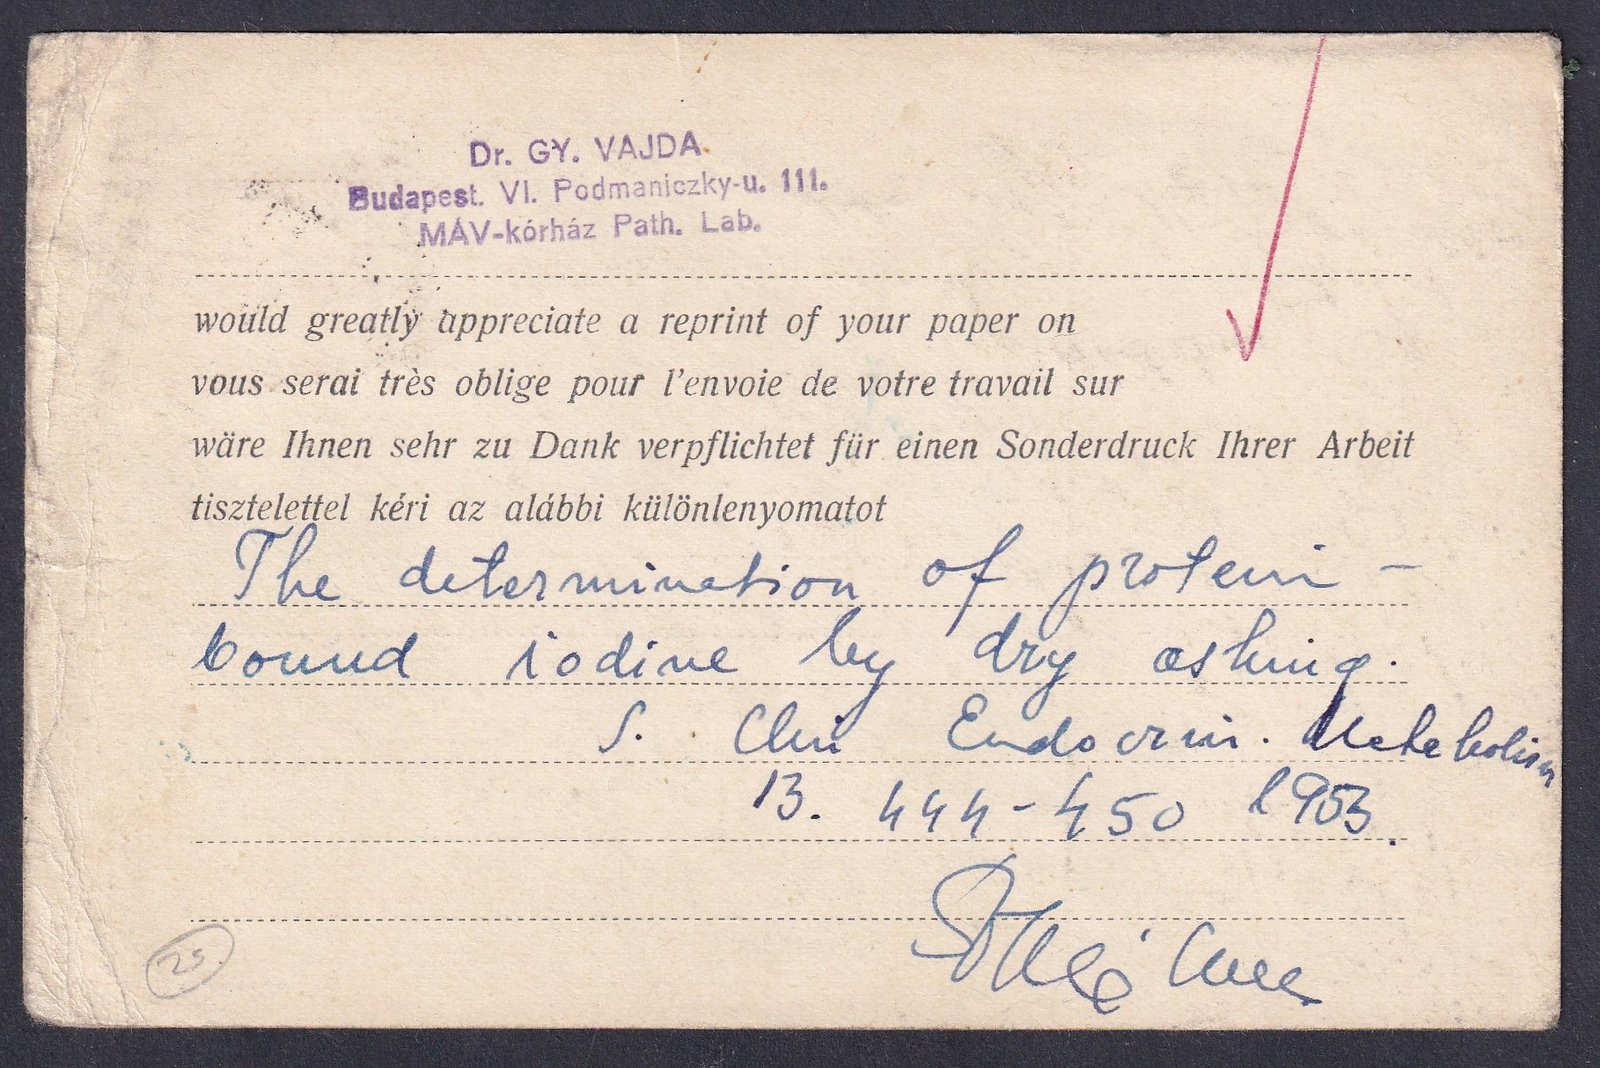 Dr. GY. VAJDA
Budapest. VI. Podmaniczky-u. 111.
MÁV-kórház Path. Lab.
would greatly appreciate a reprint of your paper on
vous serai très oblige pour l'envoie de votre travail sur
wäre Ihnen sehr zu Dank verpflichtet für einen Sonderdruck Ihrer Arbeit
tisztelettel kéri az alábbi különlenyomatot
The determination of protein -
bound iodine by dry ashing.
J. Clin Endocrin. Metabolism
13. 444-450 1953.
25.